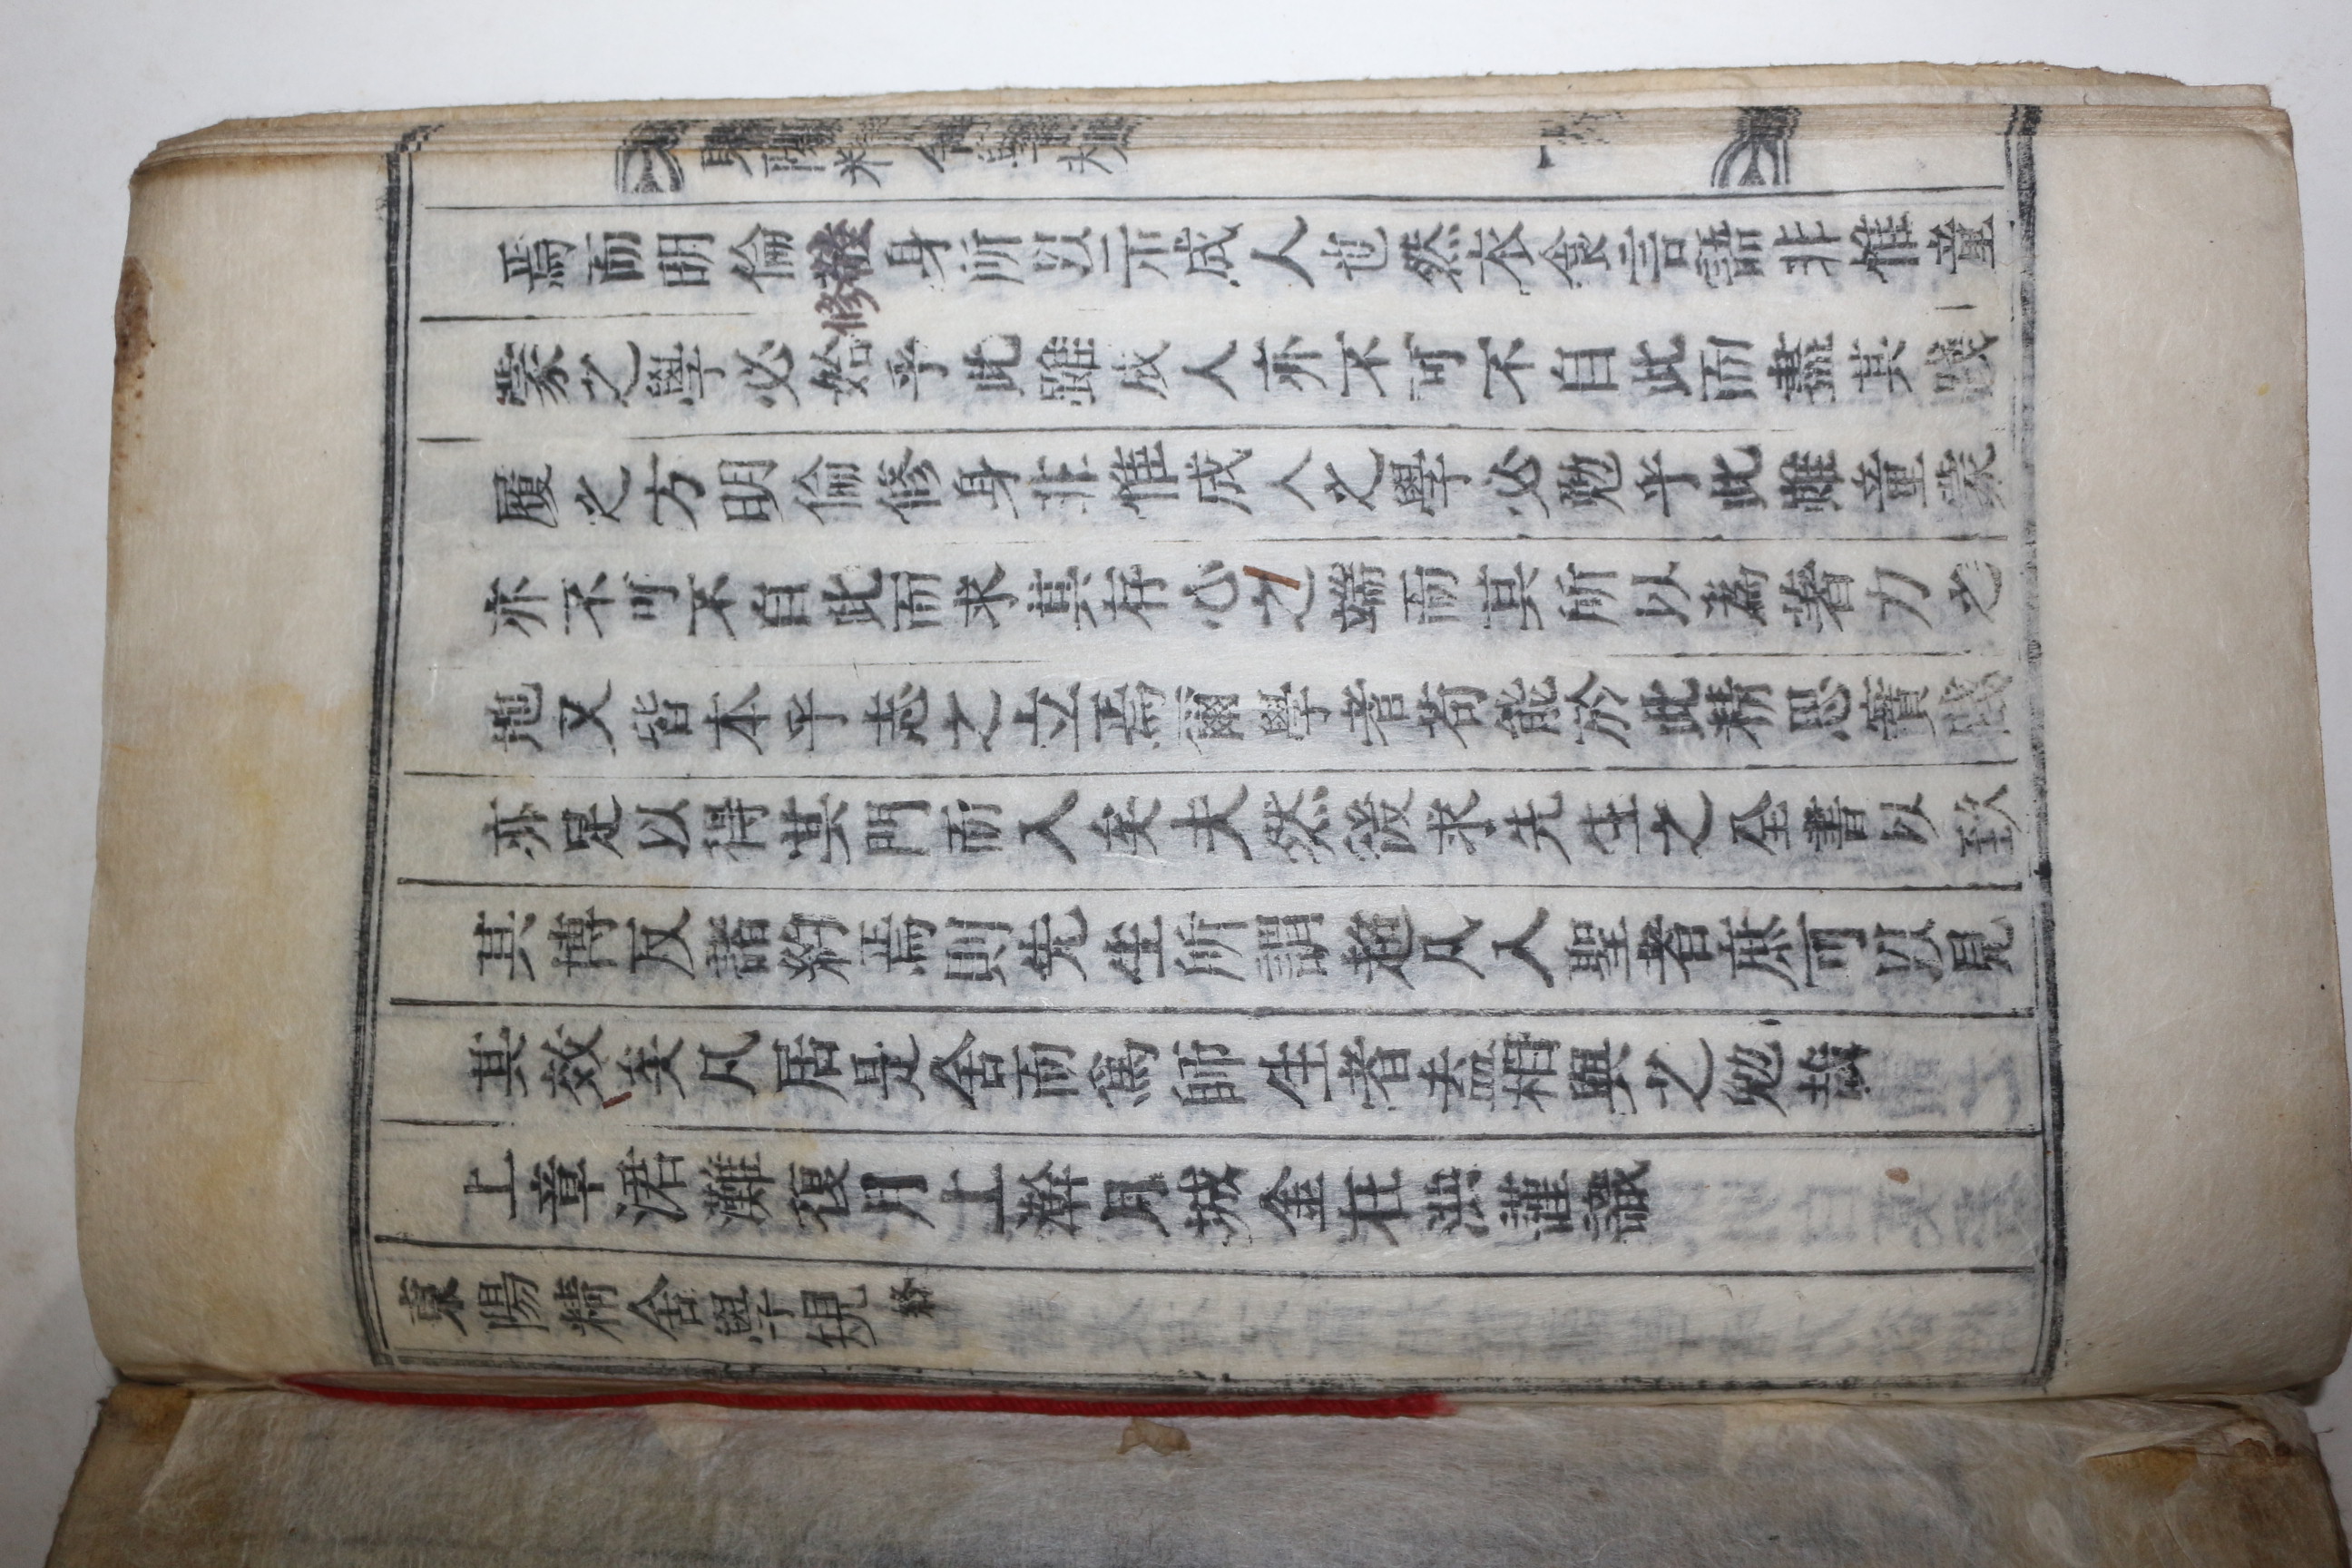 東陽精舍學規
焉而明倫敬身所以示成人也然衣食言語非惟童
修
蒙之學必始乎此雖成人亦不可不自此而盡其踐
履之方明倫修身非惟成人之學必勉乎此雖童蒙
亦不可不自此而求其存心之端而其所以為著力之
地又皆本乎志之立焉爾學者苟能於此精思實踐
亦足以得其門而入矣夫然後求先生之全書以致
其博反諸約焉則先生所謂超凡入聖者庶可以見
其效矣凡居是舍而爲師生者盍相與之勉哉
上章涒灘復月上澣月城金在洪謹識
東陽精舍學規 終